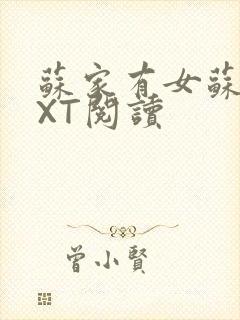 蘇家有女蘇
XT閱讀
曾小賢